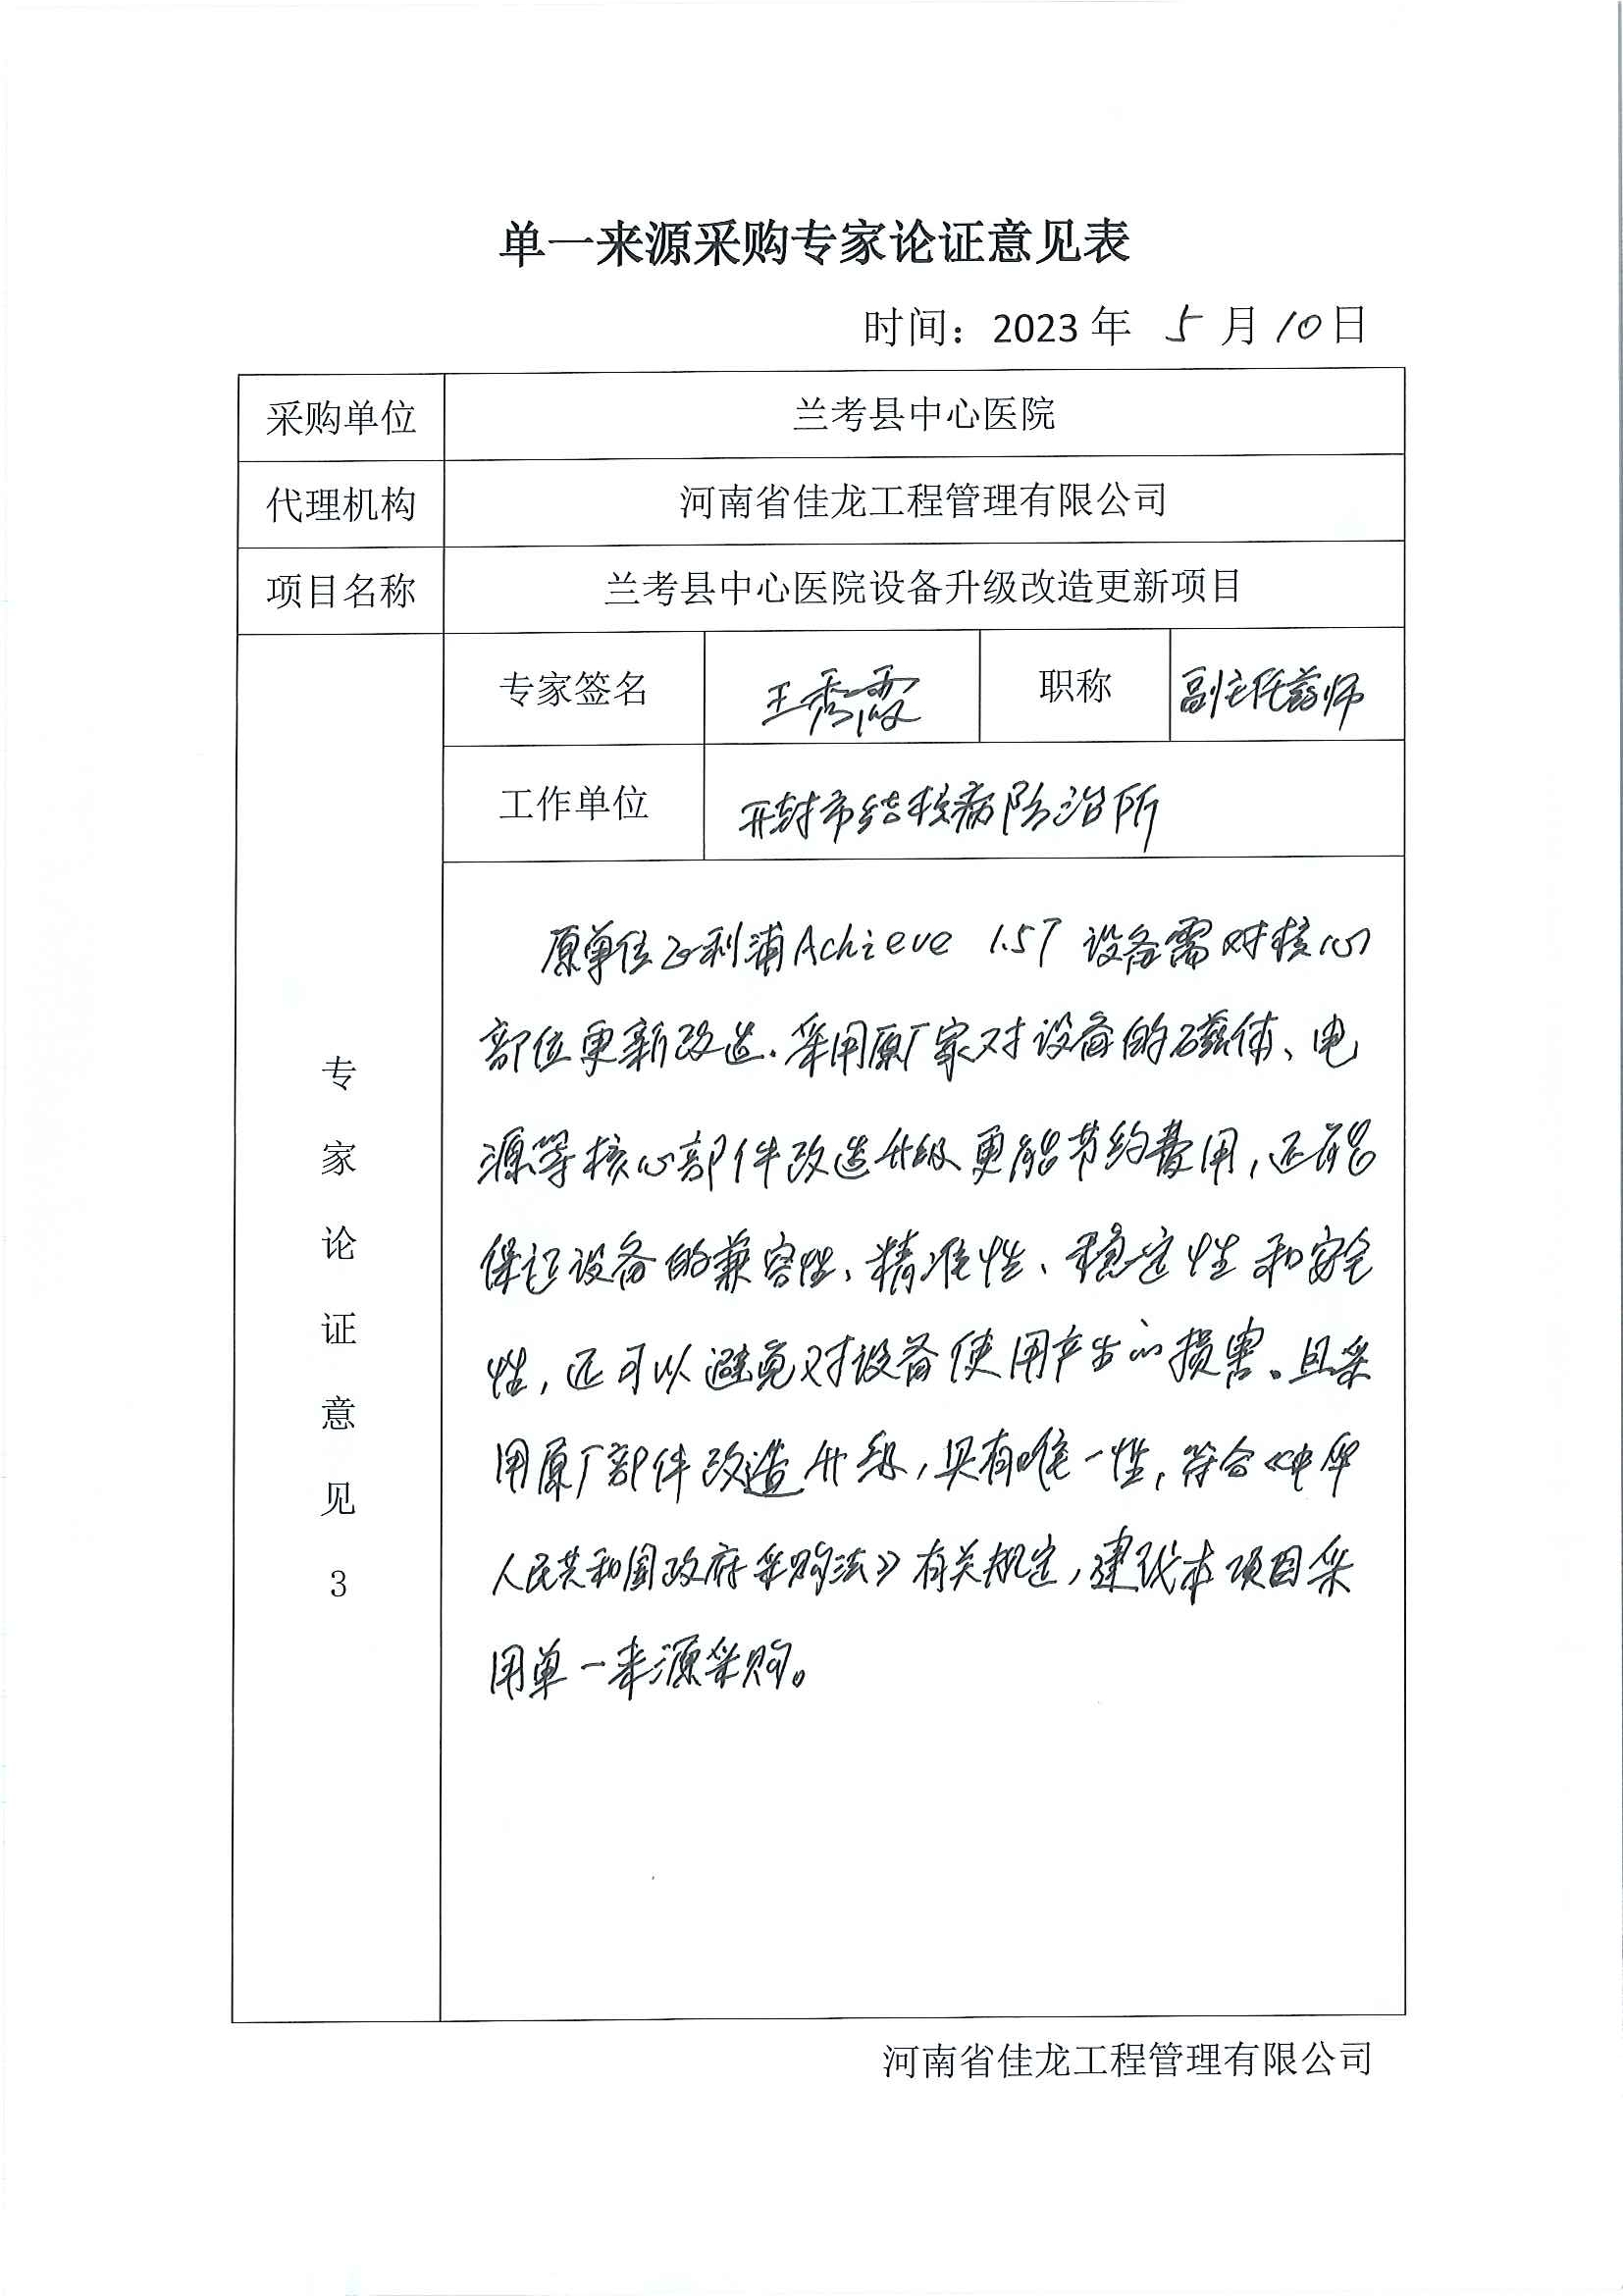 单一来源采购专家论证意见表
时间：2023 年 5 月 10 日
采购单位 兰考县中心医院
代理机构 河南省佳龙工程管理有限公司
项目名称 兰考县中心医院设备升级改造更新项目
专家签名 王秀霞 职称 副主任药师
工作单位 开封市结核病防治所
专家论证意见3
原单位飞利浦Achieve 1.5T 设备需对核心
部位更新改造.采用原厂家对设备的磁体、电
源等核心部件改造升级更能节约费用,还能
保证设备的兼容性、精准性、稳定性和安全
性,还可以避免对设备使用产生的损害。且采
用原厂部件改造升级,具有唯一性,符合《中华
人民共和国政府采购法》有关规定,建议本项目采
用单一来源采购。
河南省佳龙工程管理有限公司